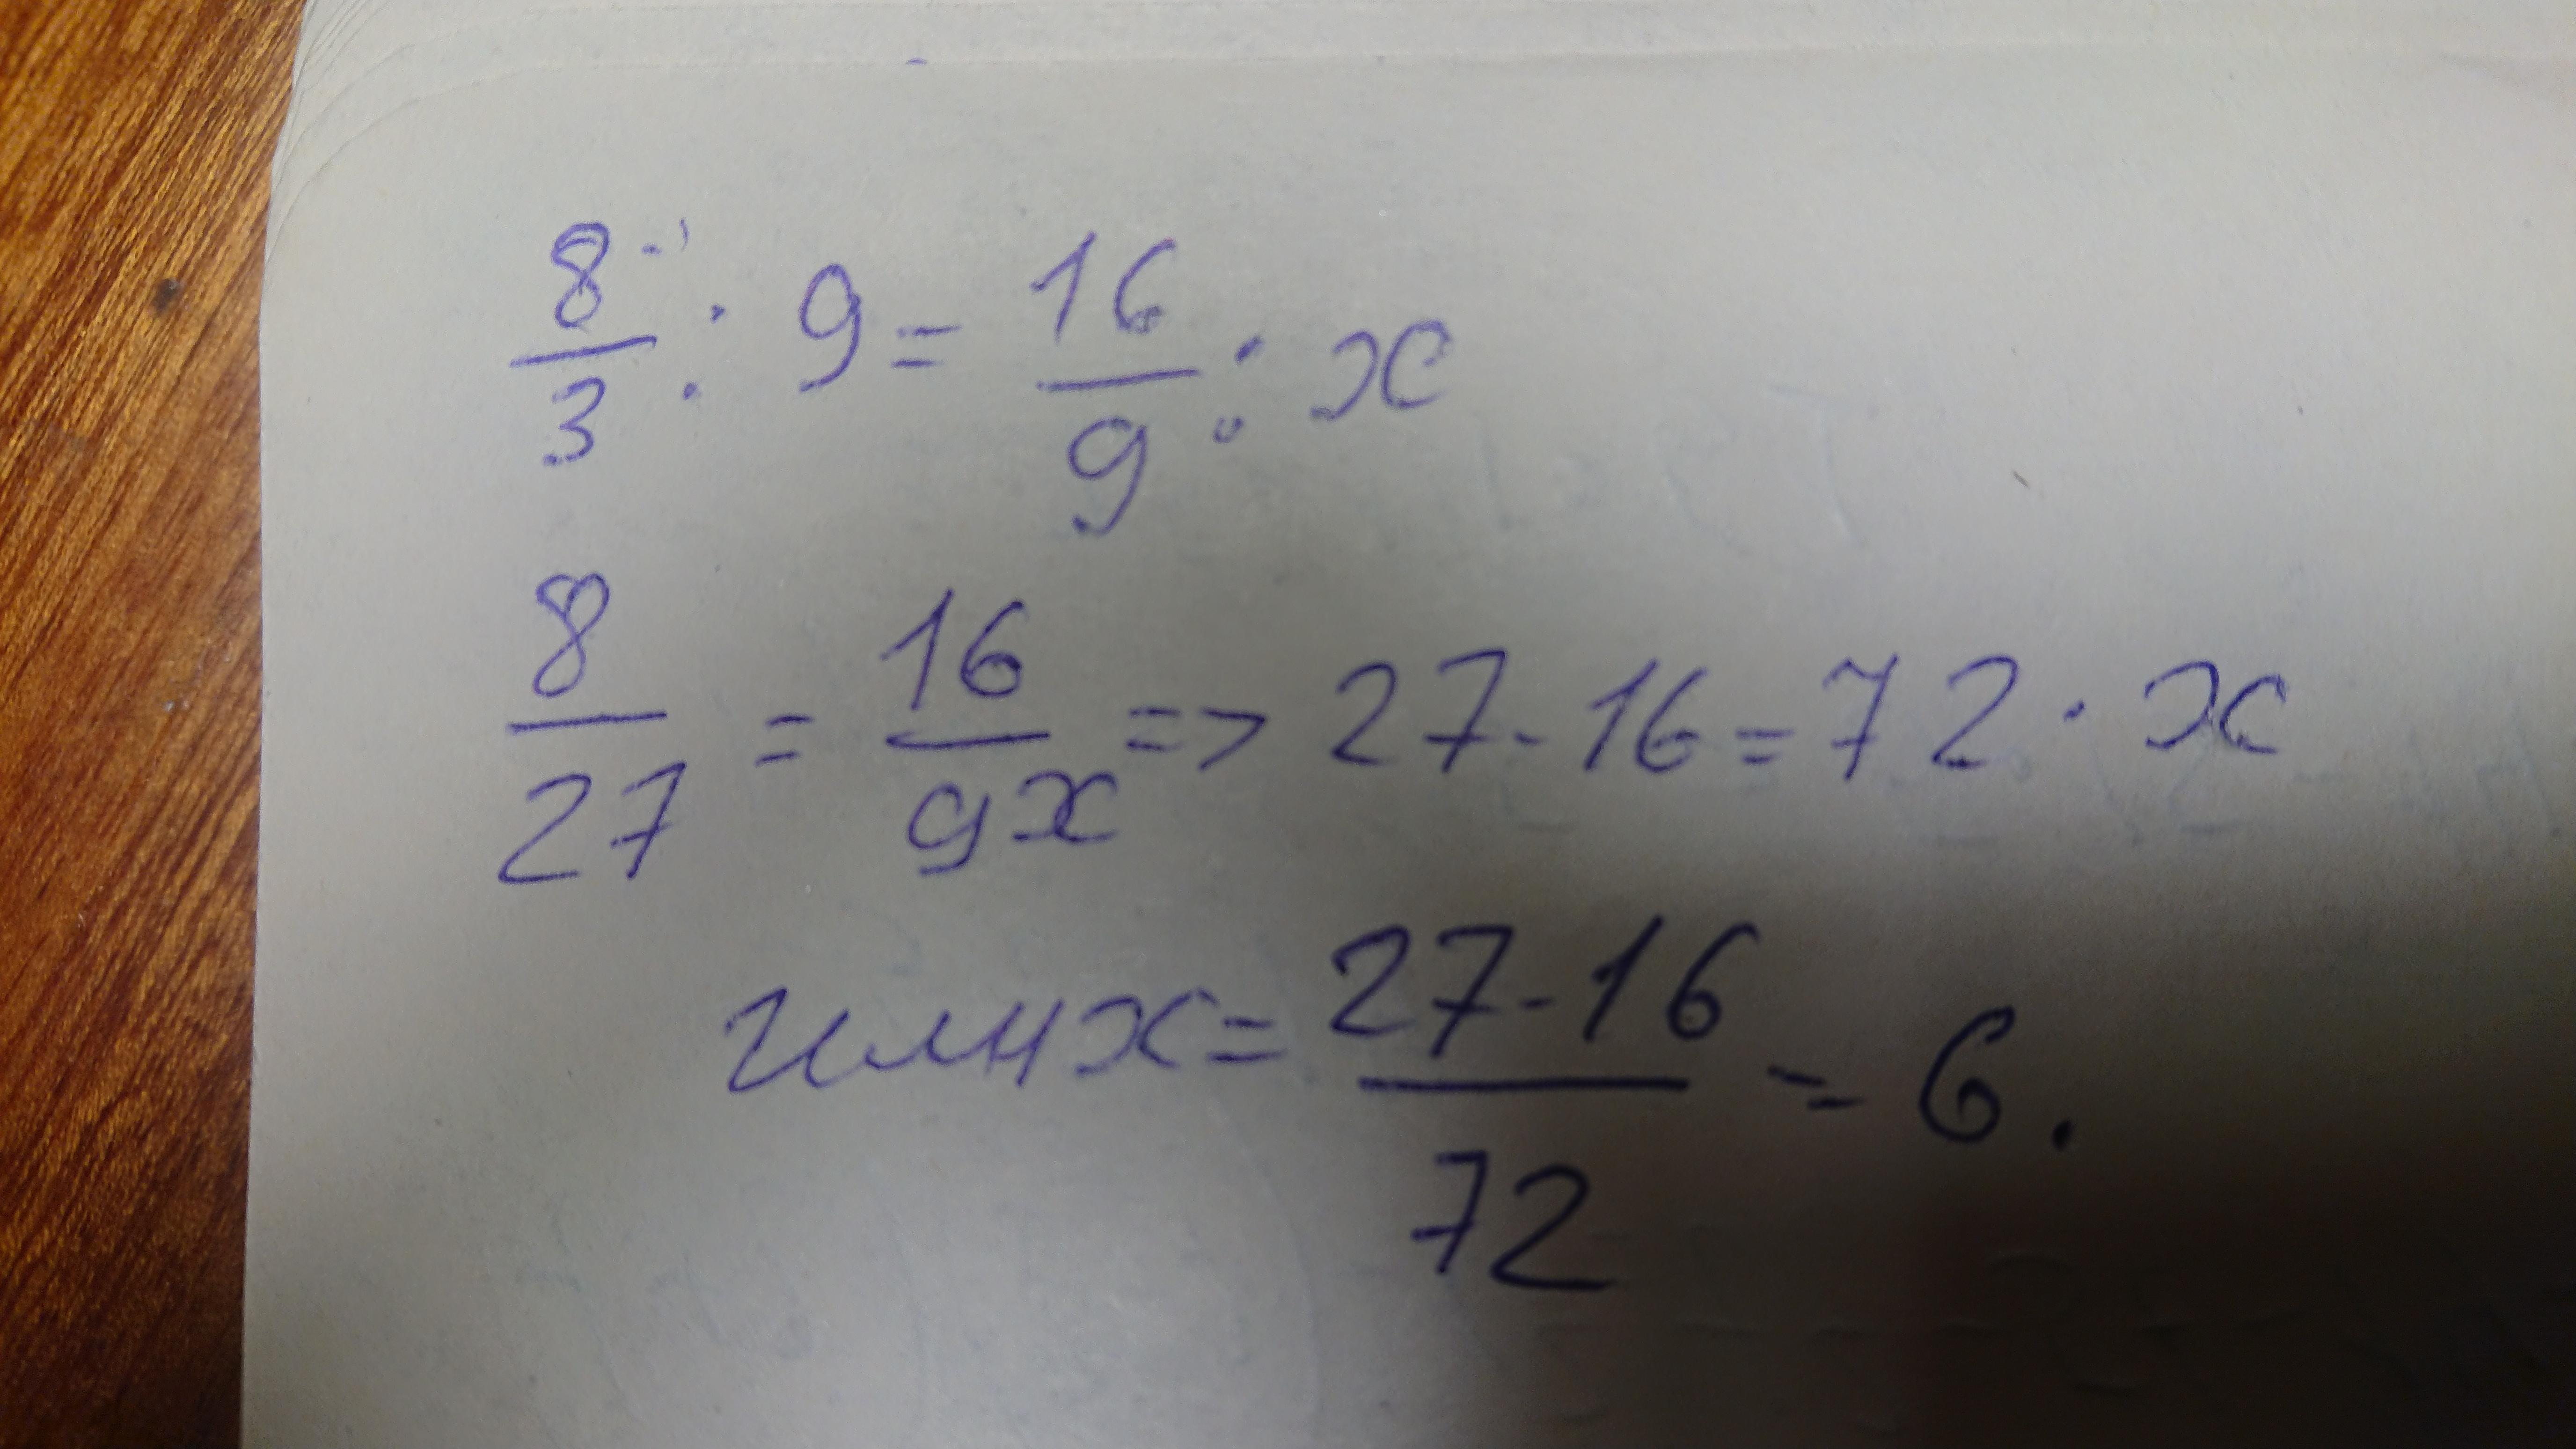 8/3 : 9 = 16/9 : x
8/27 = 16/9x => 27·16=72·x
или x = 27·16/72 = 6.